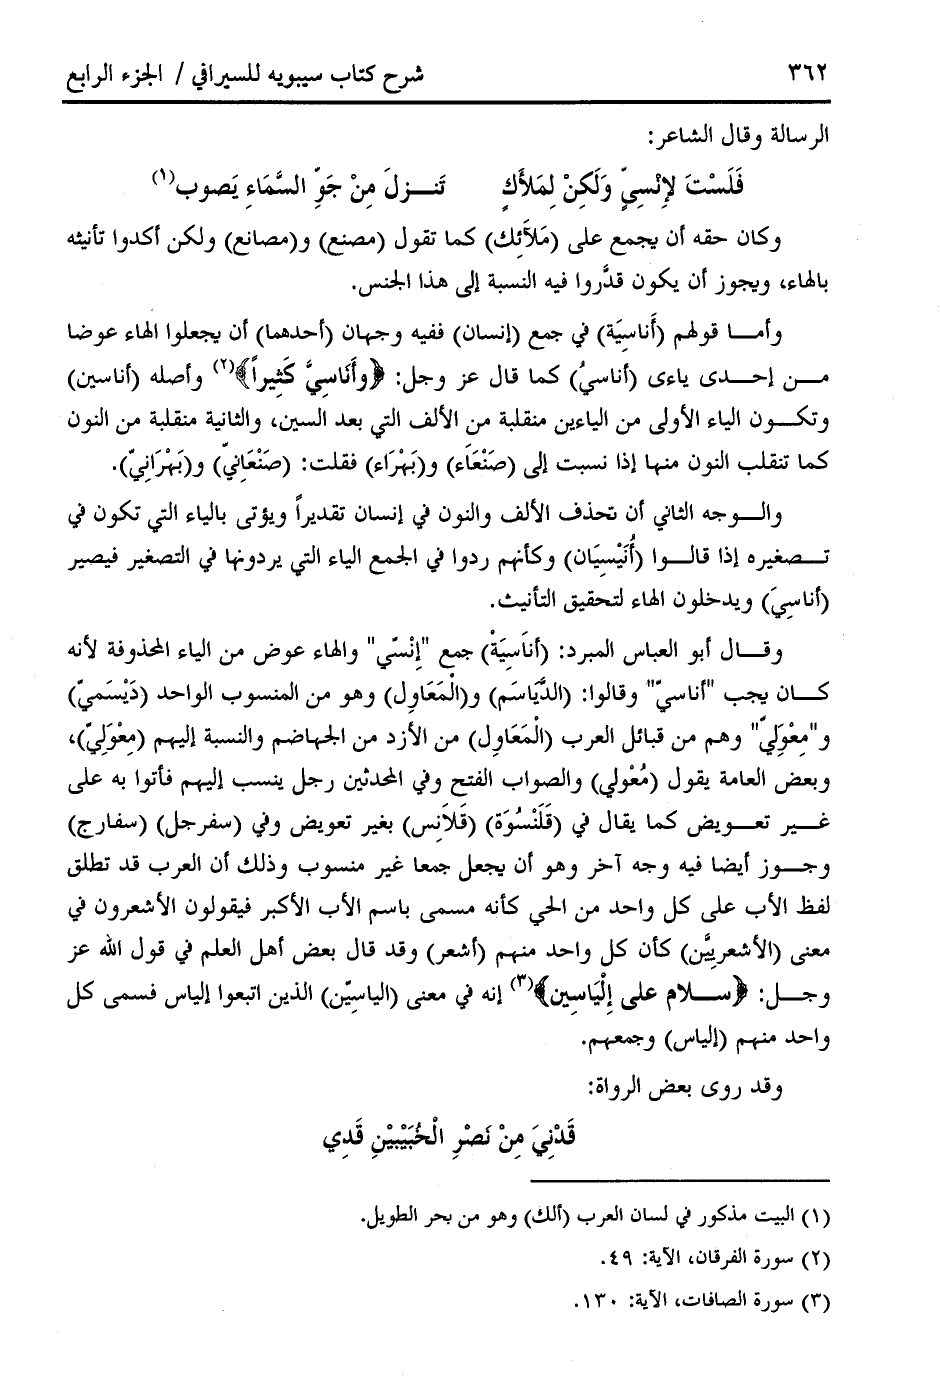 ٣٦٢
شرح كتاب سيبويه للسيرافي / الجزء الرابع
الرسالة وقال الشاعر:
فَلَسْتَ لِإِنْسِيٍّ وَلَكِنْ لِمَلأَكٍ تَنـزلَ مِنْ جَوِّ السَّمَاءِ يَصوب(١)
وكان حقه أن يجمع على (مَلاَئِك) كما تقول (مصنع) و(مصانع) ولكن أكدوا تأنيثه
بالهاء، ويجوز أن يكون قدَّروا فيه النسبة إلى هذا الجنس.
وأما قولهم (أَناسِيَة) في جمع (إنسان) ففيه وجهان (أحدهما) أن يجعلوا الهاء عوضا
من إحدى ياءى (أناسيُ) كما قال عز وجل: ﴿وأَنَاسِيَّ كَثِيراً﴾(٢) وأصله (أناسين)
وتكون الياء الأولى من الياءين منقلبة من الألف التي بعد السين، والثانية منقلبة من النون
كما تنقلب النون منها إذا نسبت إلى (صَنْعَاَء) و(بَهْرَاء) فقلت: (صَنْعَانيّ) و(بَهْرَانِيّ).
والوجه الثاني أن تحذف الألف والنون في إنسان تقديراً ويؤتى بالياء التي تكون في
تصغيره إذا قالوا (أُنَيْسِيَان) وكأنهم ردوا في الجمع الياء التي يردونها في التصغير فيصير
(أناسِيَ) ويدخلون الهاء لتحقيق التأنيث.
وقال أبو العباس المبرد: (أناَسِيَةْ) جمع "إنْسّي" والهاء عوض من الياء المحذوفة لأنه
كان يجب "أناسيّ" وقالوا: (الدَّيَاسَم) و(الْمَعَاوِل) وهو من المنسوب الواحد (دَيْسَميّ)
و"مِعْوَلِيّ" وهم من قبائل العرب (الْمَعَاوِل) من الأزد من الجهاضم والنسبة إليهم (مِعْوَلِيّ)،
وبعض العامة يقول (مُعْولي) والصواب الفتح وفي المحدثين رجل ينسب إليهم فأتوا به على
غير تعويض كما يقال في (قَلَنْسُوَة) (قَلاَنس) بغير تعويض وفي (سفرجل) (سفارج)
وجوز أيضا فيه وجه آخر وهو أن يجعل جمعا غير منسوب وذلك أن العرب قد تطلق
لفظ الأب على كل واحد من الحي كأنه مسمى باسم الأب الأكبر فيقولون الأشعرون في
معنى (الأشعريَّين) كأن كل واحد منهم (أشعر) وقد قال بعض أهل العلم في قول الله عز
وجل: ﴿سلام على إِلْيَاسِين﴾(٣) إنه في معنى (الياسيّن) الذين اتبعوا إلياس فسمى كل
واحد منهم (إلياس) وجمعهم.
وقد روى بعض الرواة:
قَدْنِيَ مِنْ نَصْرِ الْخُبَيْبَيْنِ قَدِي
(١) البيت مذكور في لسان العرب (ألك) وهو من بحر الطويل.
(٢) سورة الفرقان، الآية: ٤٩.
(٣) سورة الصافات، الآية: ١٣٠.